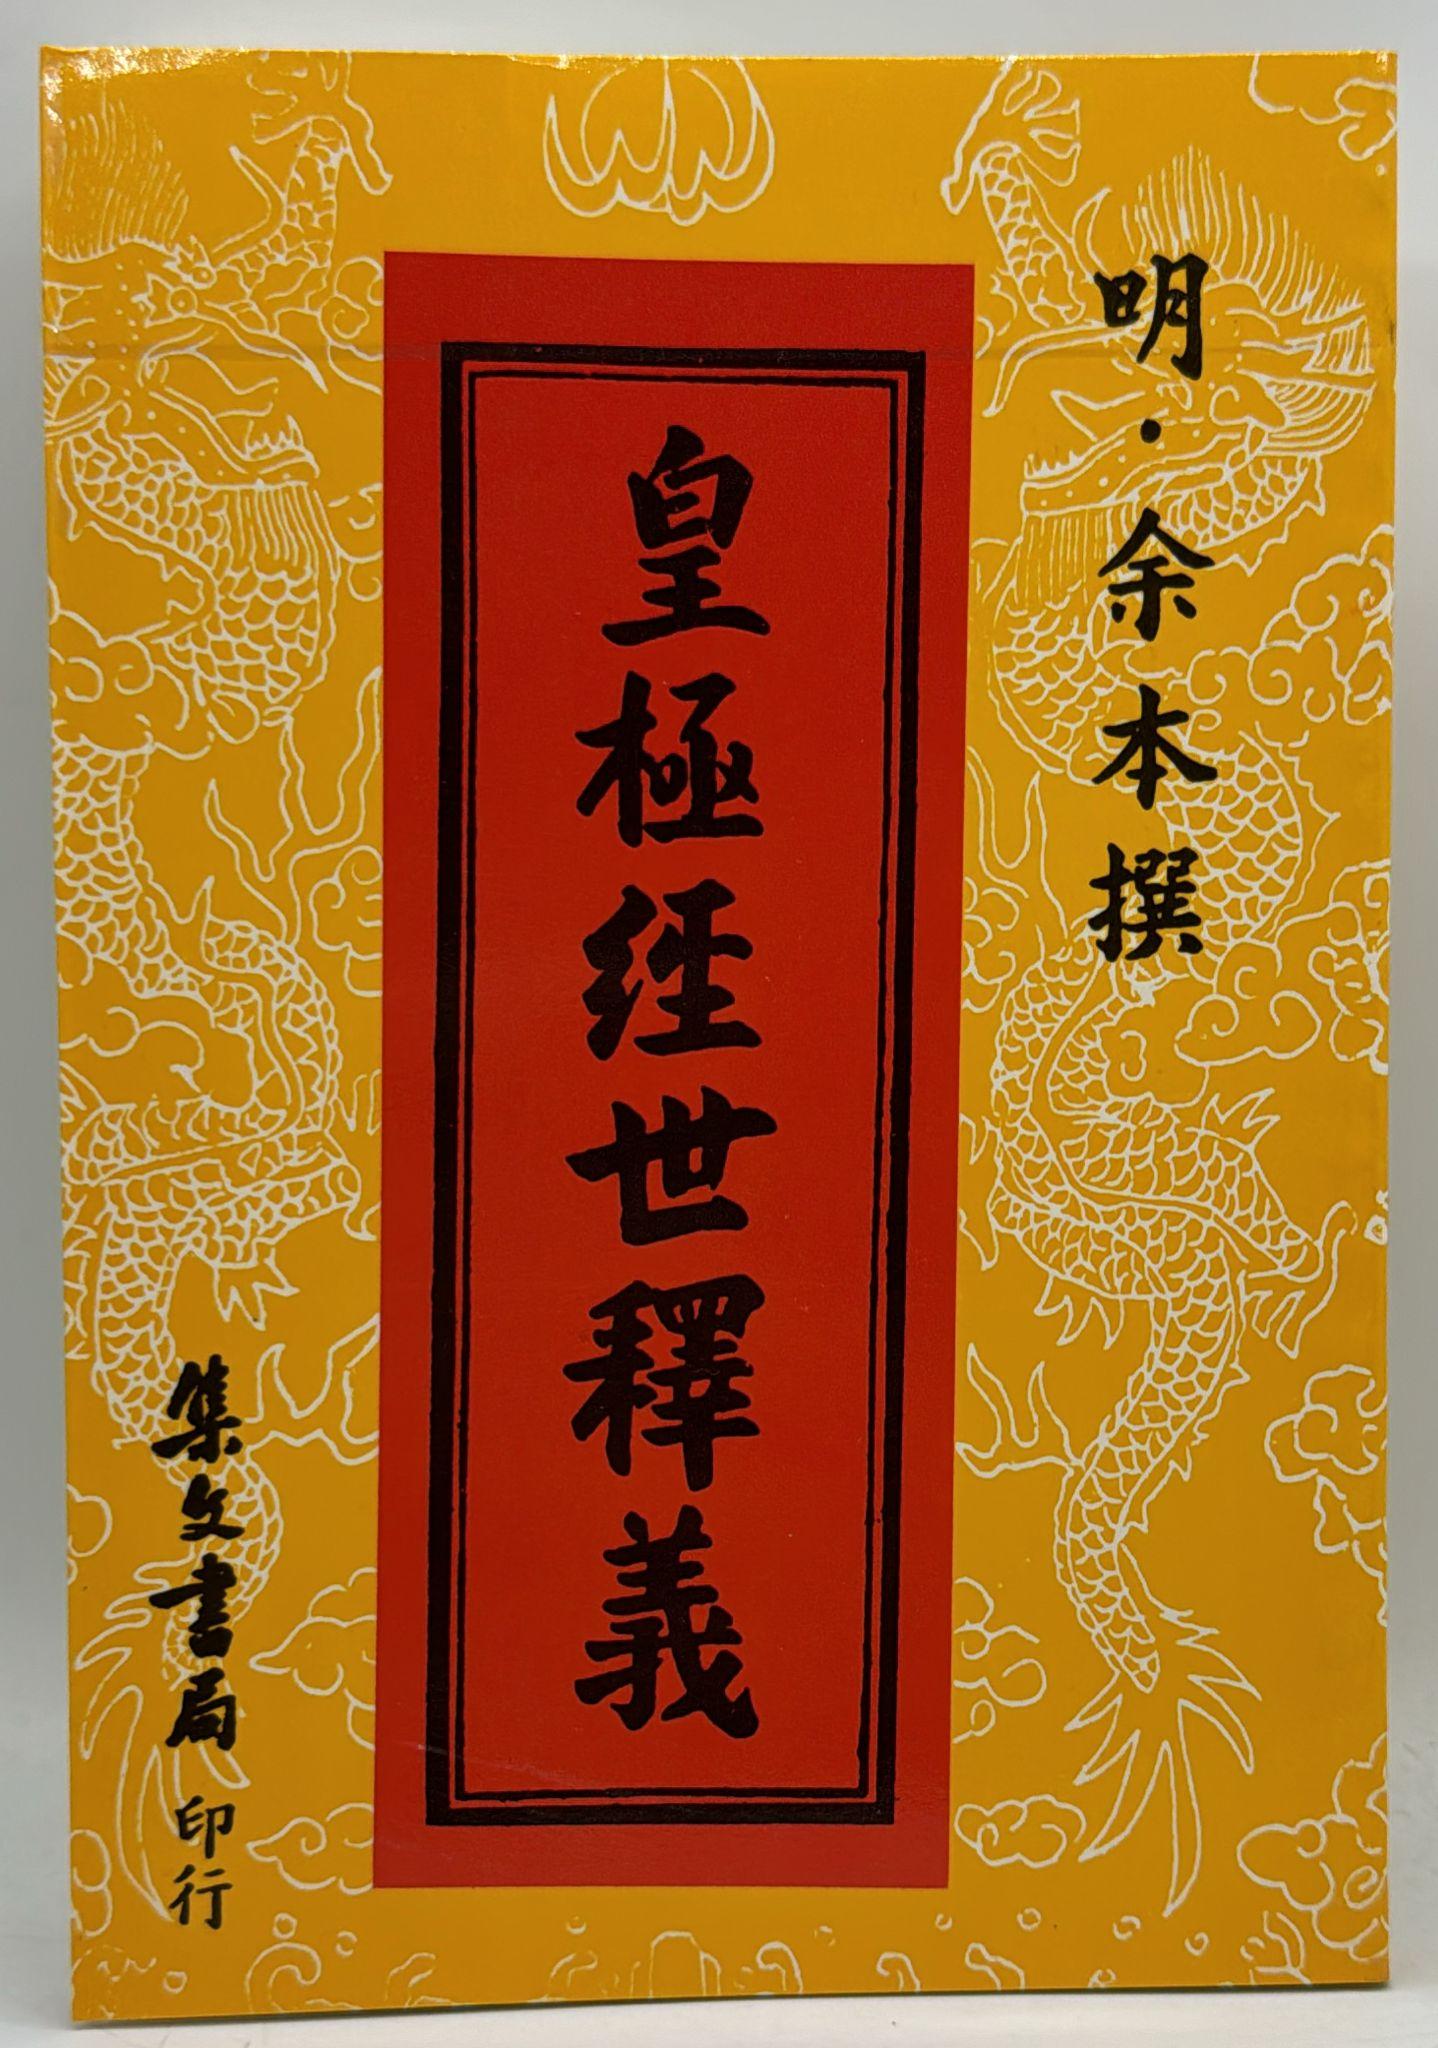 明・余本撰
皇極經世釋義
集文書局印行